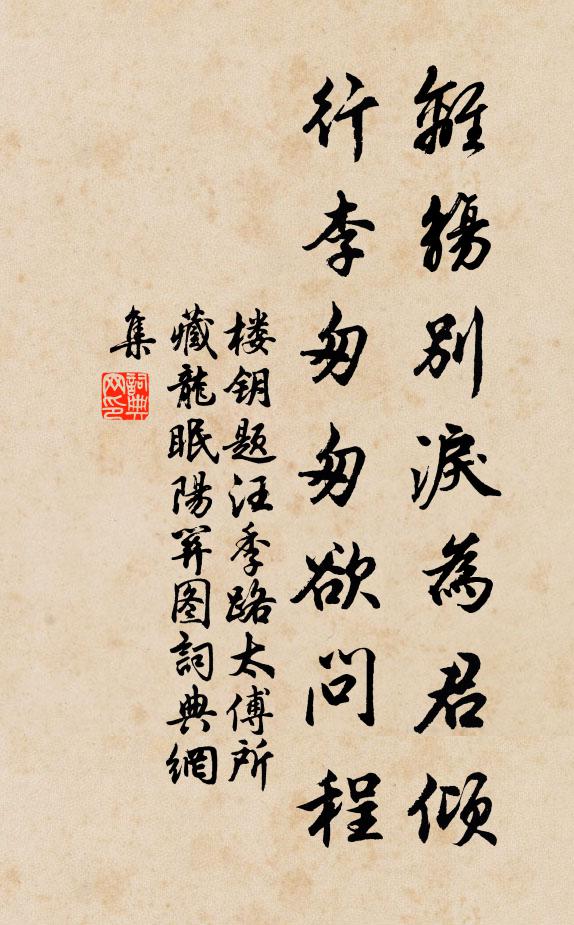 離觴別淚為君傾
行李匆匆欲問程
楼钥题汪季路太傅所
藏龍眠陽関图詞典網
集
詞典
网印